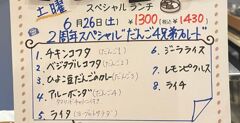 土曜
スペシャルランチ
6月26日(土) ¥1300(税込¥1430)
2周年スペシャル"だんご4兄弟プレート"
1 チキンコフタ(だんご1)
2 ベジタブルコフタ(だんご2)
3 ひよこ豆だんごのカレー(だんご3)
4 アルーボンダ(だんご4)
5 ライタ(ヨーグルトサラダ)
6 ジーラライス
7 レモンピクルス
8 ライチ